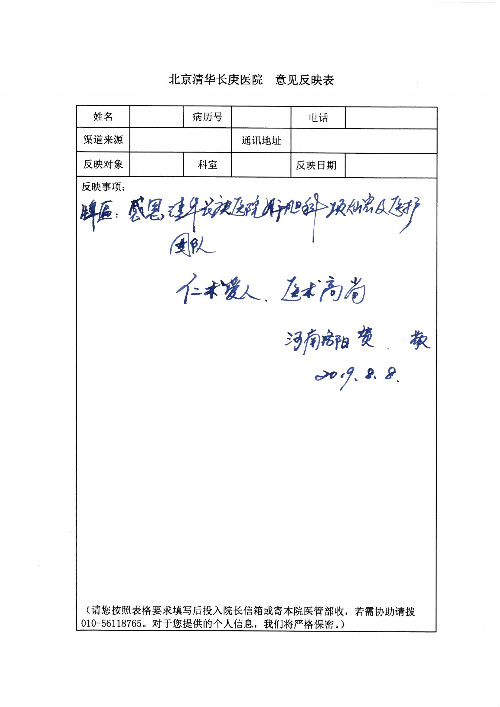 北京清华长庚医院 意见反映表
姓名 病历号 电话
渠道来源 通讯地址
反映对象 科室 反映日期
反映事项：
牌匾：感恩清华长庚医院肝胆科 项灿宏及医护
团队
仁术爱人、医术高尚
河南洛阳 贺 敬
2019.8.8.
（请您按照表格要求填写后投入院长信箱或寄本院医管部收，若需协助请拨
010-56118765。对于您提供的个人信息，我们将严格保密。）